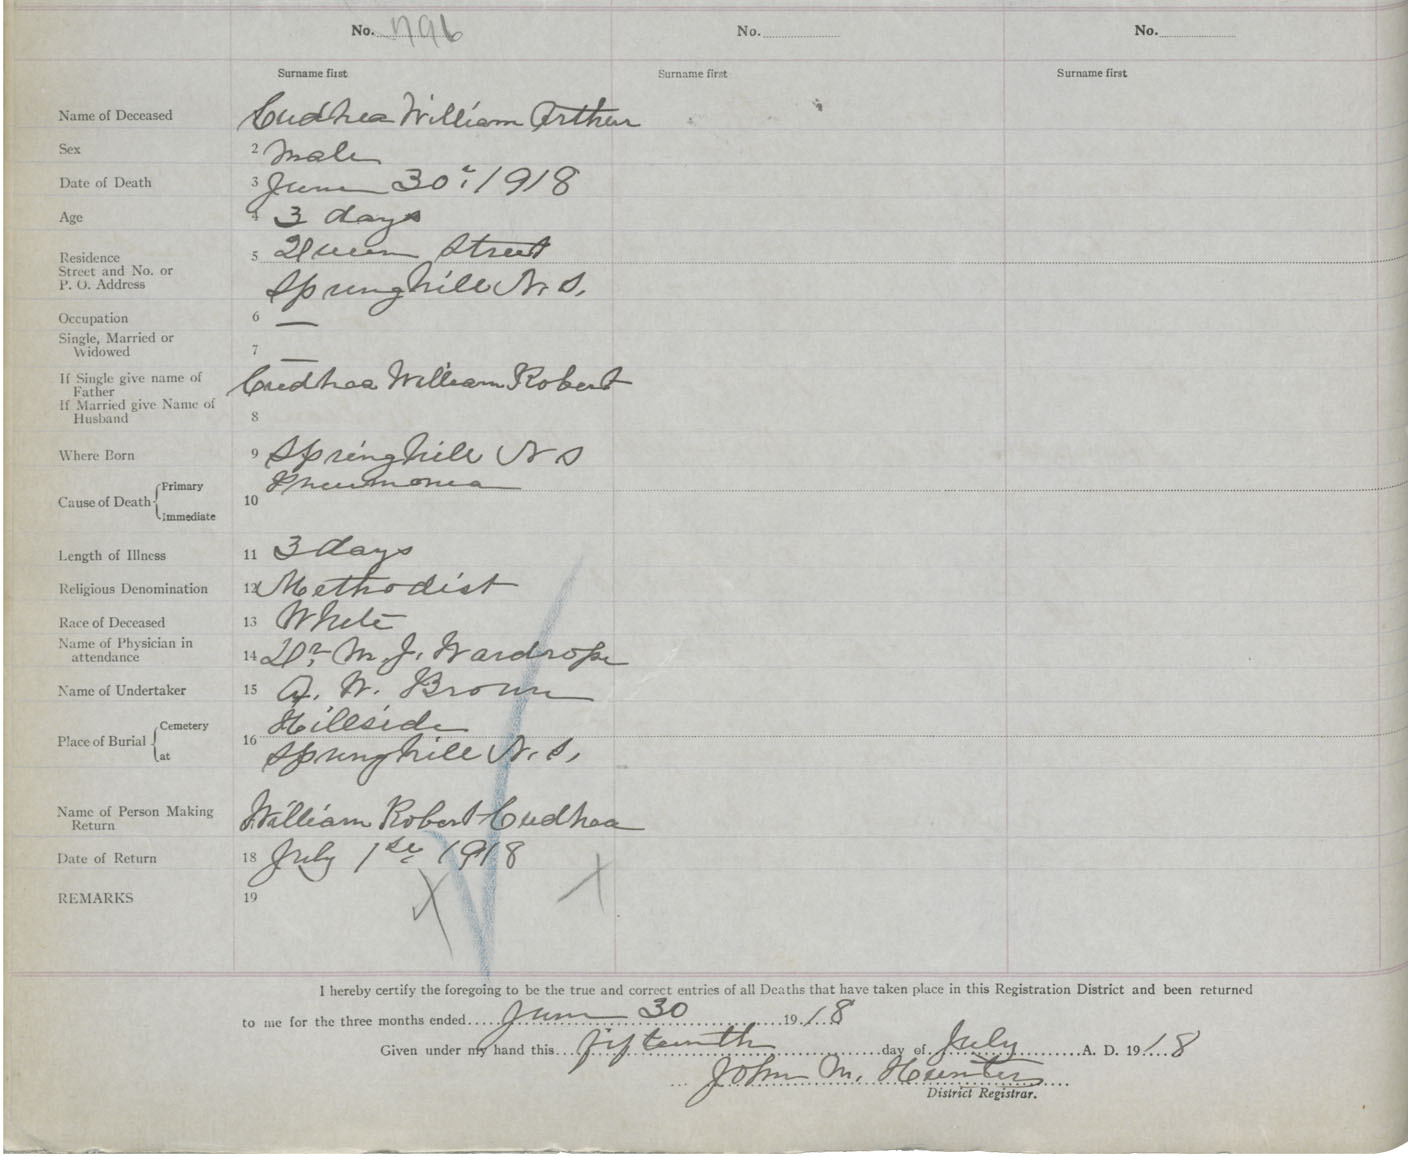 No. 796 No. No.
Surname first Surname first Surname first
Name of Deceased Cudhea William Arthur
Sex 2 Male
Date of Death 3 June 30. 1918
Age 4 3 days
Residence
Street and No. or 5 Queen Street
P. O. Address Springhill N. S.
Occupation 6 —
Single, Married or
Widowed 7 —
If Single give name of Cudhea William Robert
Father
If Married give Name of
Husband 8
Where Born 9 Springhill N S
Cause of Death { Primary Pneumonia
10
Immediate
Length of Illness 11 3 days
Religious Denomination 12 Methodist
Race of Deceased 13 White
Name of Physician in
attendance 14 Dr. M. J. Wardrope
Name of Undertaker 15 A. W. Brown
Place of Burial { Cemetery Hillside
16
at Springhill N. S.
Name of Person Making William Robert Cudhea
Return
Date of Return 18 July 1st 1918
REMARKS 19
I hereby certify the foregoing to be the true and correct entries of all Deaths that have taken place in this Registration District and been returned
to me for the three months ended June 30 1918
Given under my hand this fifteenth day of July A. D. 1918
John M. Hunter
District Registrar.